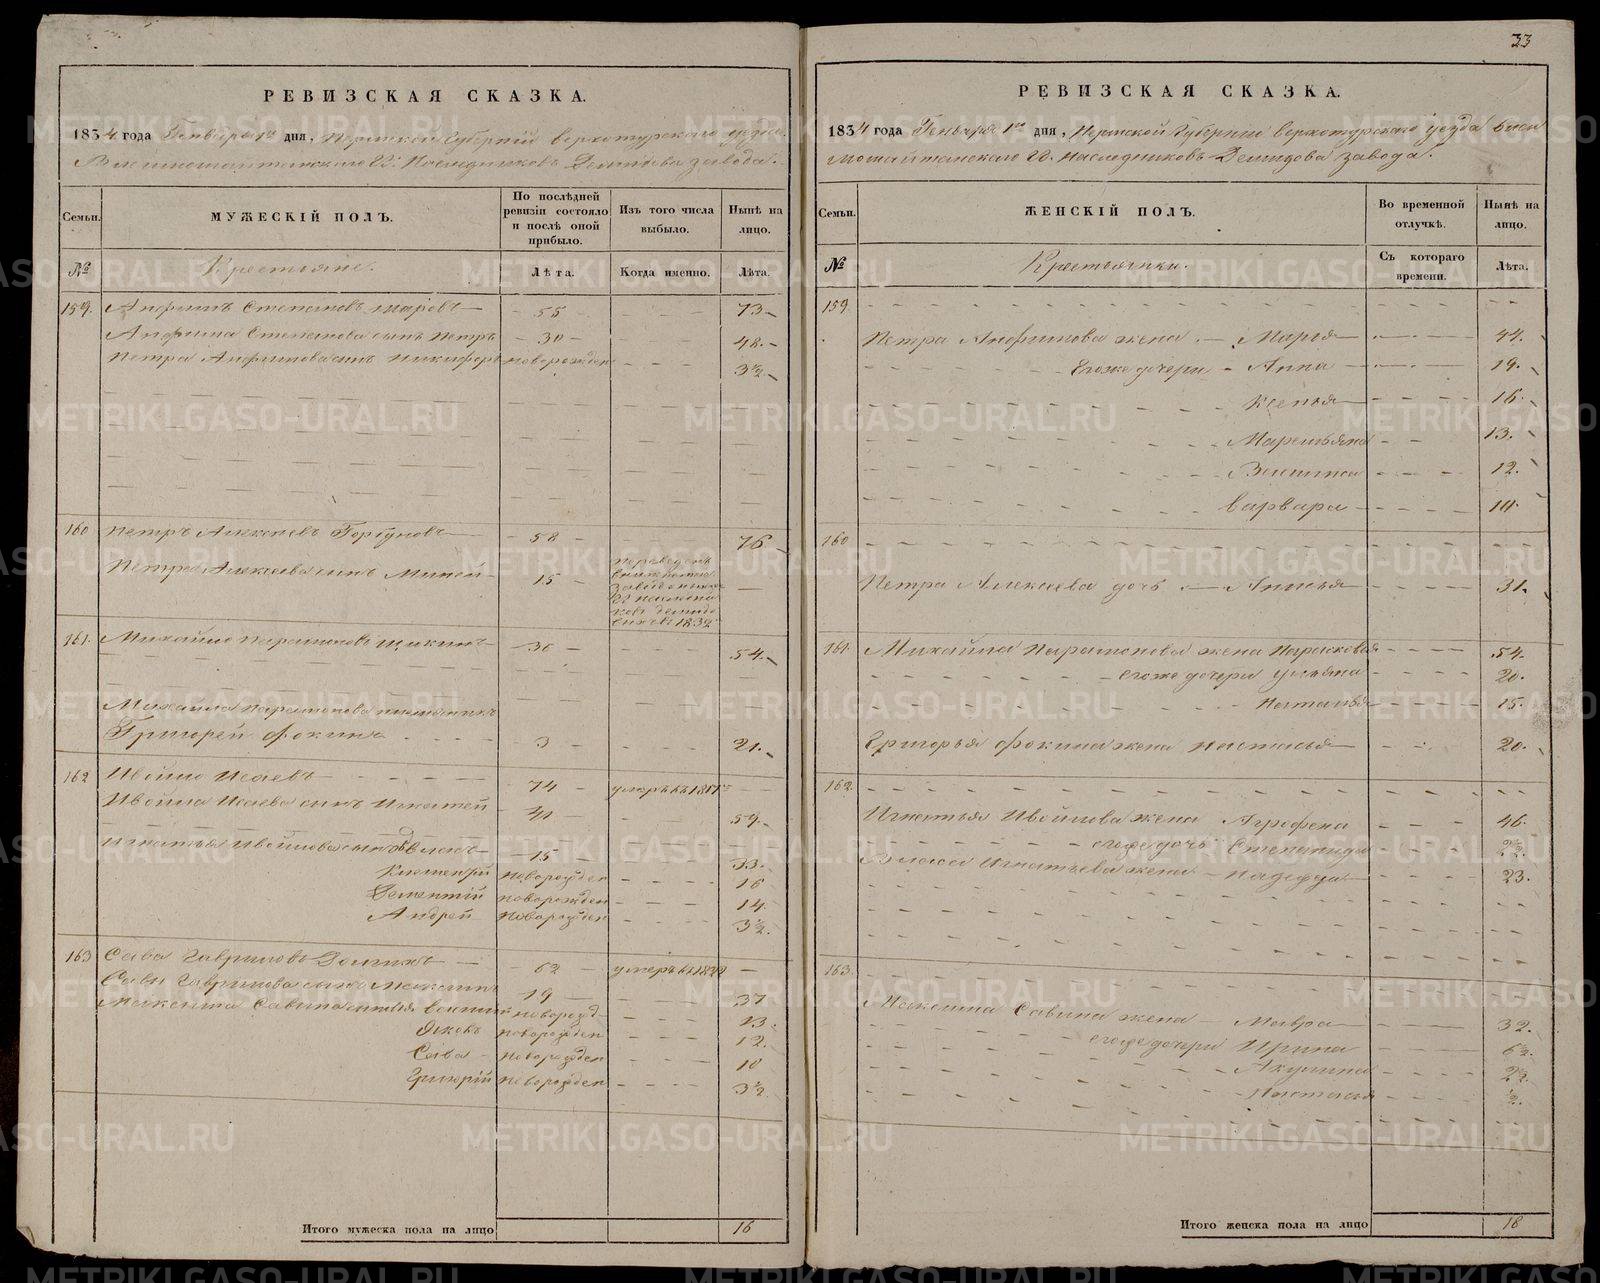 РЕВИЗСКАЯ СКАЗКА.
1834 года Генваря 1го дня, Пермской Губернии верхотурскаго уезда
Висимошайтанскаго Гг: Наследниковъ Демидова завода.
Семьи.
МУЖЕСКІЙ ПОЛЪ.
По послѣдней ревизіи состояло и послѣ оной прибыло.
Изъ того числа выбыло.
Нынѣ на лицо.
№
Крестьяне.
Лѣта.
Когда именно.
Лѣта.
159. Анфимъ Степановъ 55 73
Анфима Степанова сынъ Петръ 30 48.
Петра Анфимова сынъ Никифоръ новорожден 3½
160 Петръ Алексеевъ Горбуновъ 58 76
Петра Алексеева сынъ Миней 15 переведенъ
заводъ
Гг наследни
ковъ демидо
выхъ в 1832
161. Михайло Парамоновъ Щукинъ 30 54.
Михаила Парамонова племянникъ
Григорей Фокинъ 3 21.
162 Ивойло Исаевъ 74 умеръ въ
Ивойла Исаева сынъ Игнатей 41 59.
Игнатья Ивойлова сынъ Власъ 15 33.
Климентій новорожден 16
Дементій новорожден 14.
Андрей новорожден 3½.
163 Сава Гавриловъ 62 умеръ въ
Савы Гаврилова сынъ Максимъ 19 37
Максима Савина сыновья новорожд 13.
Яковъ новорожден 12.
Сава новорожден 10
Григорій новорожден 3½
Итого мужеска пола на лицо 16
33
РЕВИЗСКАЯ СКАЗКА.
1834 года Генваря 1го дня, Пермской Губерніи верхотурскаго уезда Виси
мошайтанскаго Гг. Наследниковъ Демидова завода.
Семьи.
ЖЕНСКІЙ ПОЛЪ.
Во временной отлучкѣ.
Нынѣ на лицо.
№
Крестьянки.
Съ котораго времени.
Лѣта.
159
Петра Анфимова жена Марья 44.
Егоже дочери Анна 19.
Ксенья 16.
Маремьяна 13.
12.
Варвара 10.
160
Петра Алексеева дочь Анисья 31.
161. Михайла Парамонова жена Парасковья 54.
егоже дочери Ульяна 20.
Наталья 15.
Григорья Фокина жена Настасья 20.
162.
Игнатья Ивойлова жена Агрофена 46.
егоже дочь Степанида 2½.
Власа Игнатьева жена Надежда 23.
163.
Максима Савина жена Мавра 32.
егоже дочери Ирина 6½.
Акулина 2½.
Настасья ½.
Итого женска пола на лицо 18
METRIKI.GASO-URAL.RU